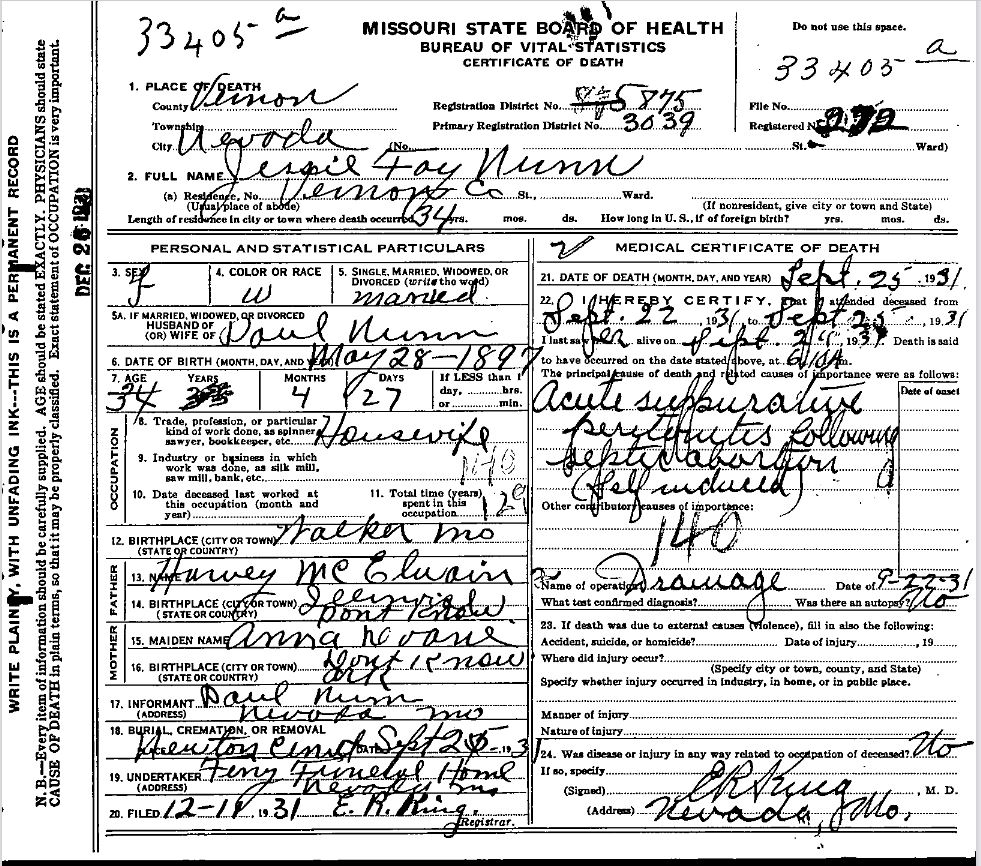 33405 a
MISSOURI STATE BOARD OF HEALTH
BUREAU OF VITAL STATISTICS
CERTIFICATE OF DEATH
Do not use this space.
33405 a
1. PLACE OF DEATH
County Vernon
Township
City Nevada (No. St. Ward)
Registration District No. 875
Primary Registration District No. 3039
File No.
Registered No.
2. FULL NAME Jessie Fay Nunn
(a) Residence, No. Vernon Co St., Ward.
(Usual place of abode) (If nonresident, give city or town and State)
Length of residence in city or town where death occurred 34 yrs. mos. ds. How long in U. S., if of foreign birth? yrs. mos. ds.
PERSONAL AND STATISTICAL PARTICULARS
3. SEX F
4. COLOR OR RACE W
5. SINGLE, MARRIED, WIDOWED, OR DIVORCED (write the word) married
5A. IF MARRIED, WIDOWED, OR DIVORCED
HUSBAND OF
(OR) WIFE OF Paul Nunn
6. DATE OF BIRTH (MONTH, DAY, AND YEAR) May 28-1897
7. AGE YEARS MONTHS DAYS If LESS than 1
34 4 27 day, hrs.
or min.
OCCUPATION
8. Trade, profession, or particular
kind of work done, as spinner,
sawyer, bookkeeper, etc. Housewife
9. Industry or business in which
work was done, as silk mill,
saw mill, bank, etc.
10. Date deceased last worked at
this occupation (month and
year)
11. Total time (years)
spent in this
occupation
12. BIRTHPLACE (CITY OR TOWN) Walker Mo
(STATE OR COUNTRY)
FATHER
13. NAME Harvey McElwain
14. BIRTHPLACE (CITY OR TOWN) Dont Know
(STATE OR COUNTRY)
MOTHER
15. MAIDEN NAME Anna
16. BIRTHPLACE (CITY OR TOWN) Dont Know
(STATE OR COUNTRY) Ark
17. INFORMANT Paul Nunn
(ADDRESS) Nevada Mo
18. BURIAL, CREMATION, OR REMOVAL
PLACE Newton DATE Sept 193
19. UNDERTAKER Ferry Funeral Home
(ADDRESS) Nevada Mo
20. FILED 12-11, 1931 E. R. King.
Registrar.
MEDICAL CERTIFICATE OF DEATH
21. DATE OF DEATH (MONTH, DAY, AND YEAR) Sept. 25 1931
22. I HEREBY CERTIFY, That I attended deceased from
Sept. 22, 1931, to Sept 25, 1931
I last saw her alive on Sept. 193 Death is said
to have occurred on the date stated above, at 6:10A m.
The principal cause of death and related causes of importance were as follows:
Date of onset
Acute suppurative
peritonitis following
septic abortion
(self induced)
Other contributory causes of importance:
140
Name of operation Drainage Date of 9-22-31
What test confirmed diagnosis? Was there an autopsy? No
23. If death was due to external causes (violence), fill in also the following:
Accident, suicide, or homicide? Date of injury , 19
Where did injury occur?
(Specify city or town, county, and State)
Specify whether injury occurred in industry, in home, or in public place.
Manner of injury
Nature of injury
24. Was disease or injury in any way related to occupation of deceased? No
If so, specify
(Signed) E R King, M. D.
(Address) Nevada, Mo.
WRITE PLAINLY, WITH UNFADING INK---THIS IS A PERMANENT RECORD
N. B.—Every item of information should be carefully supplied. AGE should be stated EXACTLY. PHYSICIANS should state
CAUSE OF DEATH in plain terms, so that it may be properly classified. Exact statement of OCCUPATION is very important.
DEC 26 1931